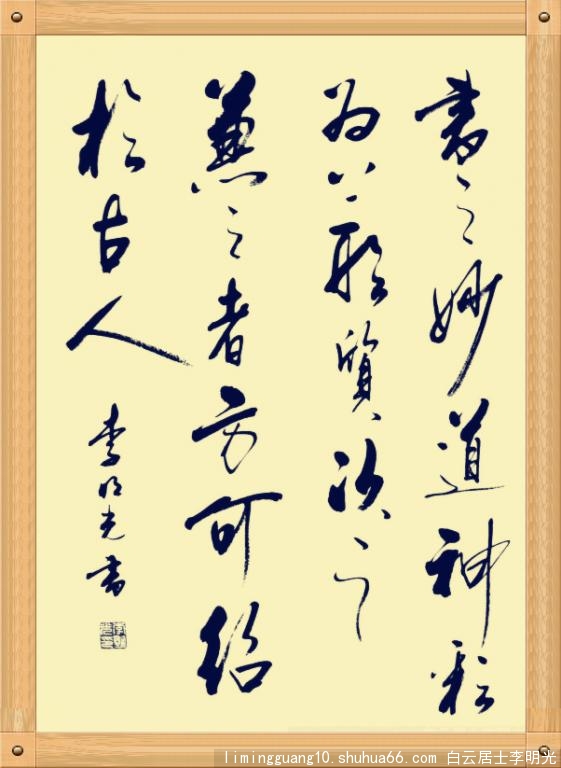 書之妙道神彩
为上形質次之
兼之者方可紹
於古人
李明光書
limingguang10.shuhua66.com 白云居士李明光